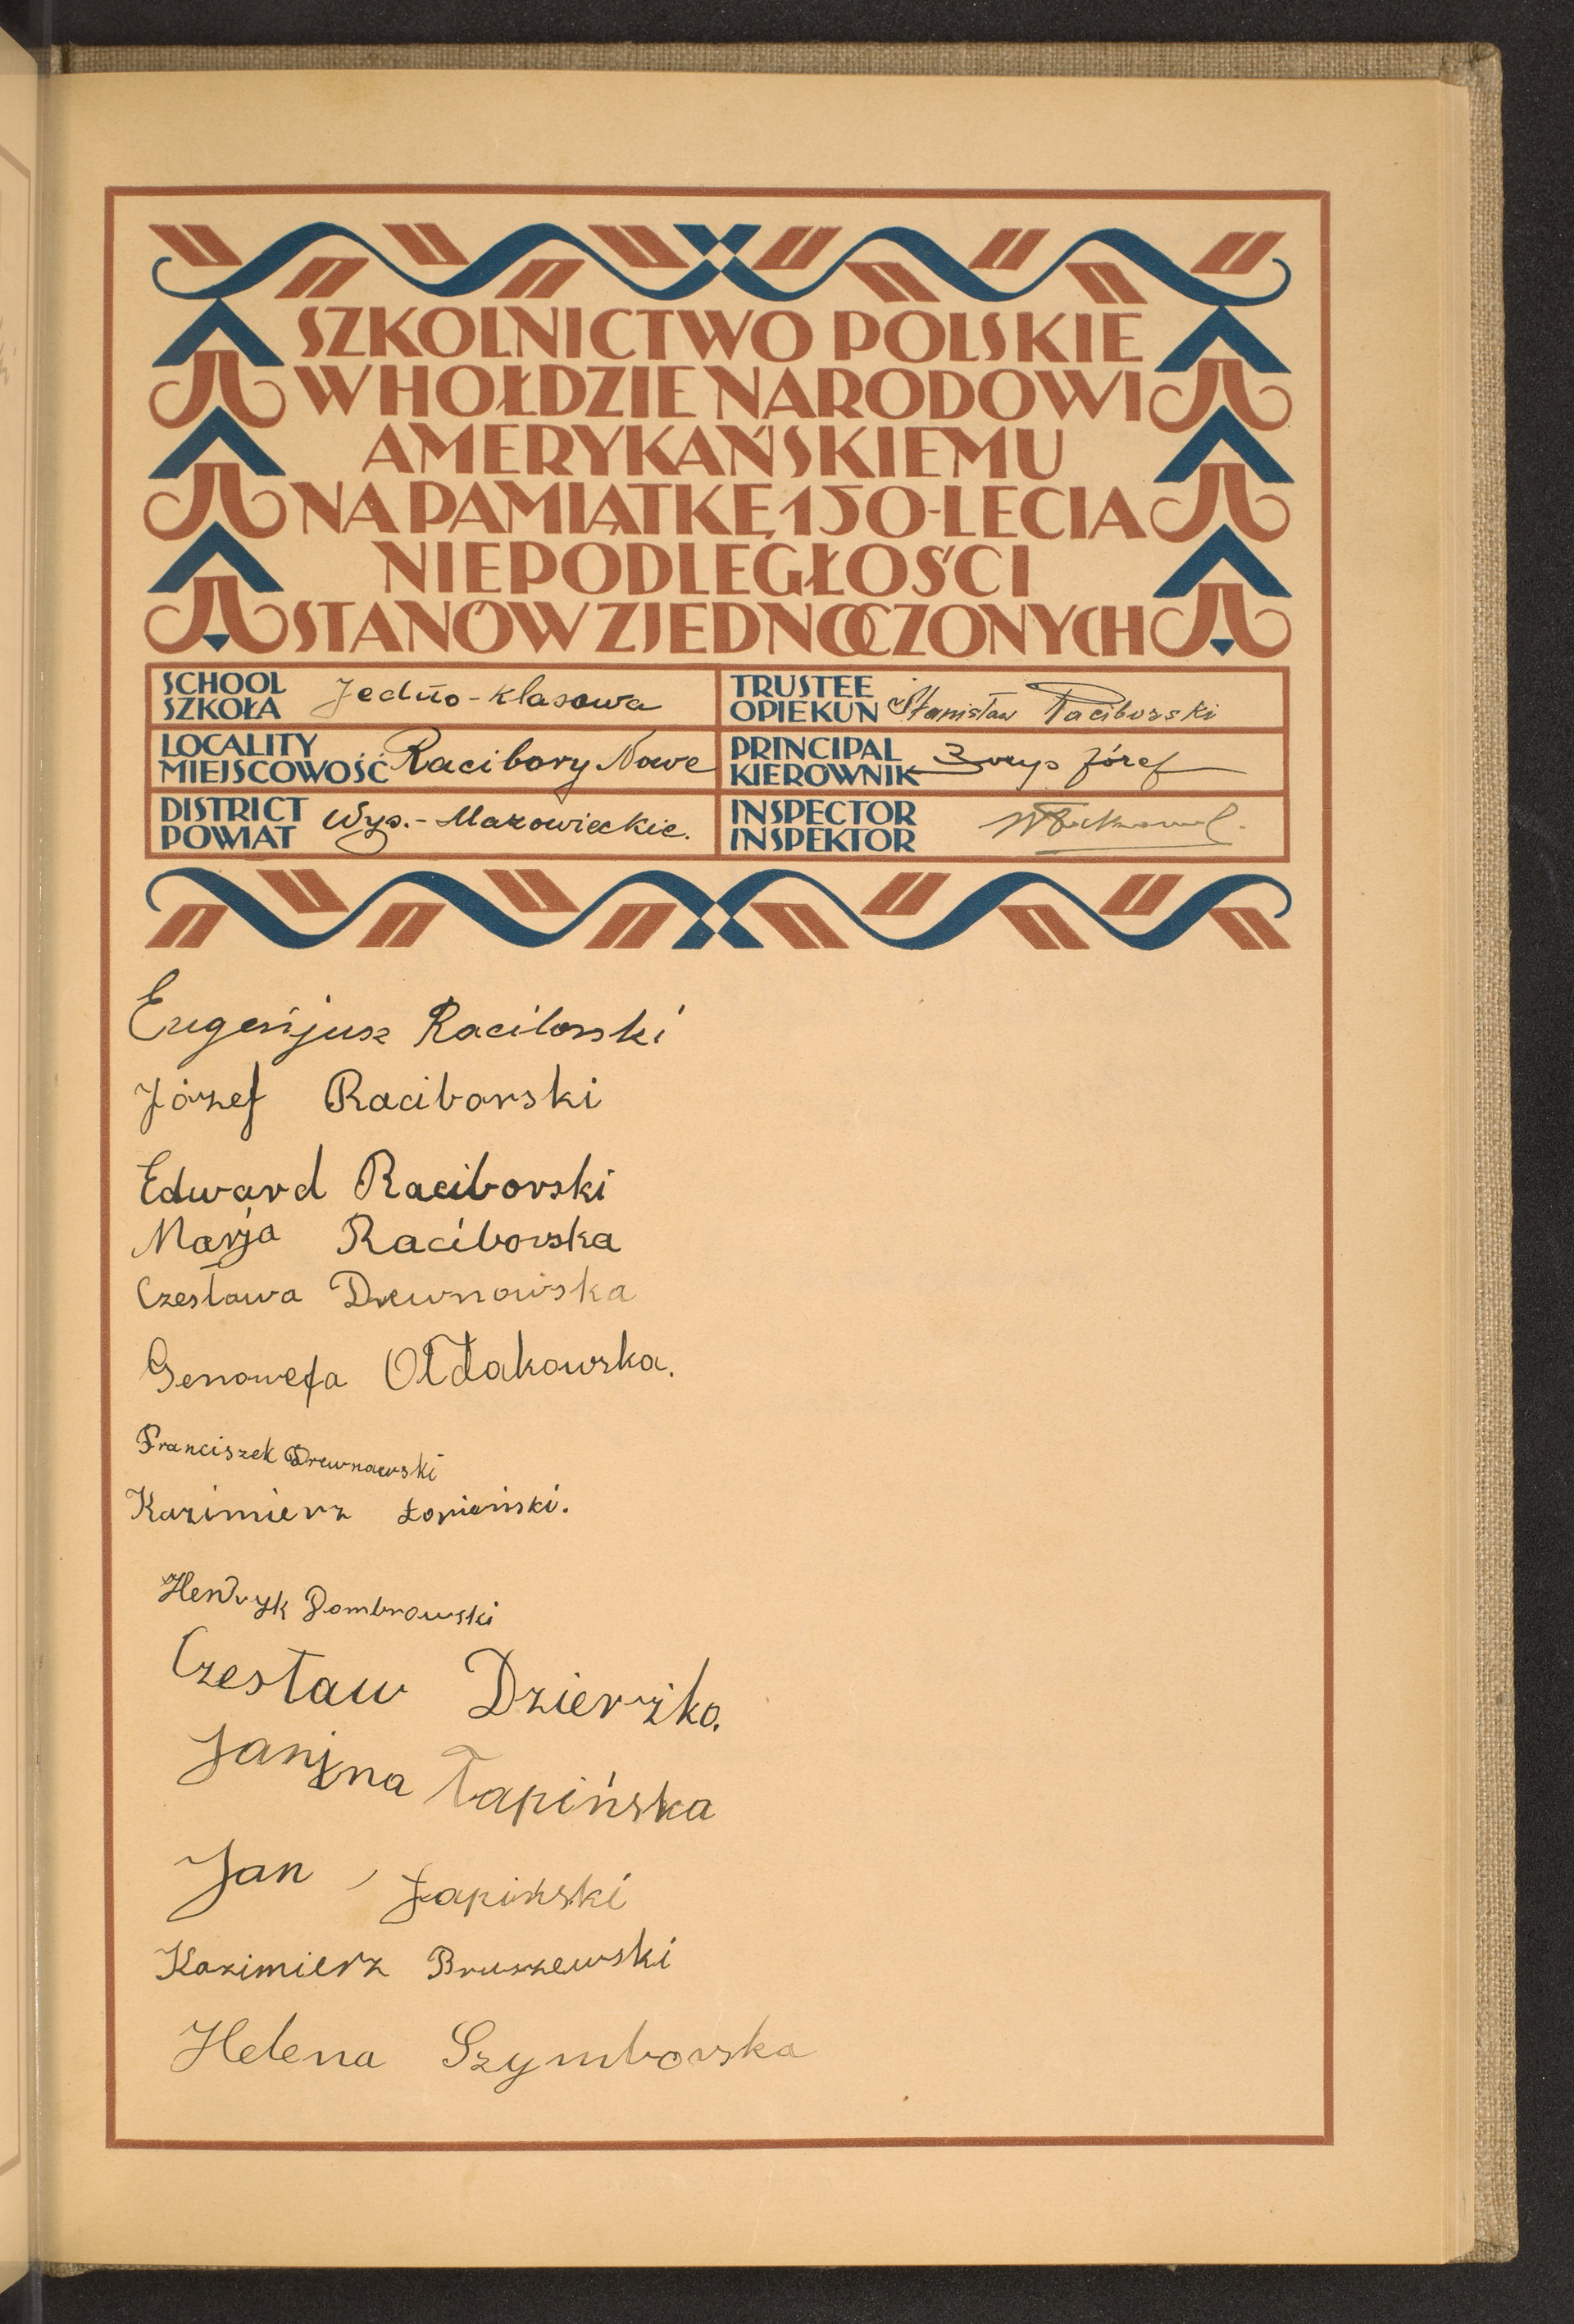 SZKOLNICTWO POLSKIE
W HOŁDZIE NARODOWI
AMERYKAŃSKIEMU
NA PAMIĄTKĘ 150-LECIA
NIEPODLEGŁOŚCI
STANÓW ZJEDNOCZONYCH
SCHOOL
SZKOŁA Jedno-klasowa
TRUSTEE
OPIEKUN Stanisław Raciborski
LOCALITY
MIEJSCOWOŚĆ Racibory Nowe
PRINCIPAL
KIEROWNIK Józef
DISTRICT
POWIAT Wys.-Mazowieckie.
INSPECTOR
INSPEKTOR
Eugenjusz Raciborski
Józef Raciborski
Edward Raciborski
Marja Raciborska
Czesława Drewnowska
Genowefa Ołdakowska.
Franciszek Drewnowski
Kazimierz Łopieński.
Henryk Dombrowski
Czesław Dzierżko.
Janina Łapińska
Jan Łapiński
Kazimierz Bruszewski
Helena Szymborska